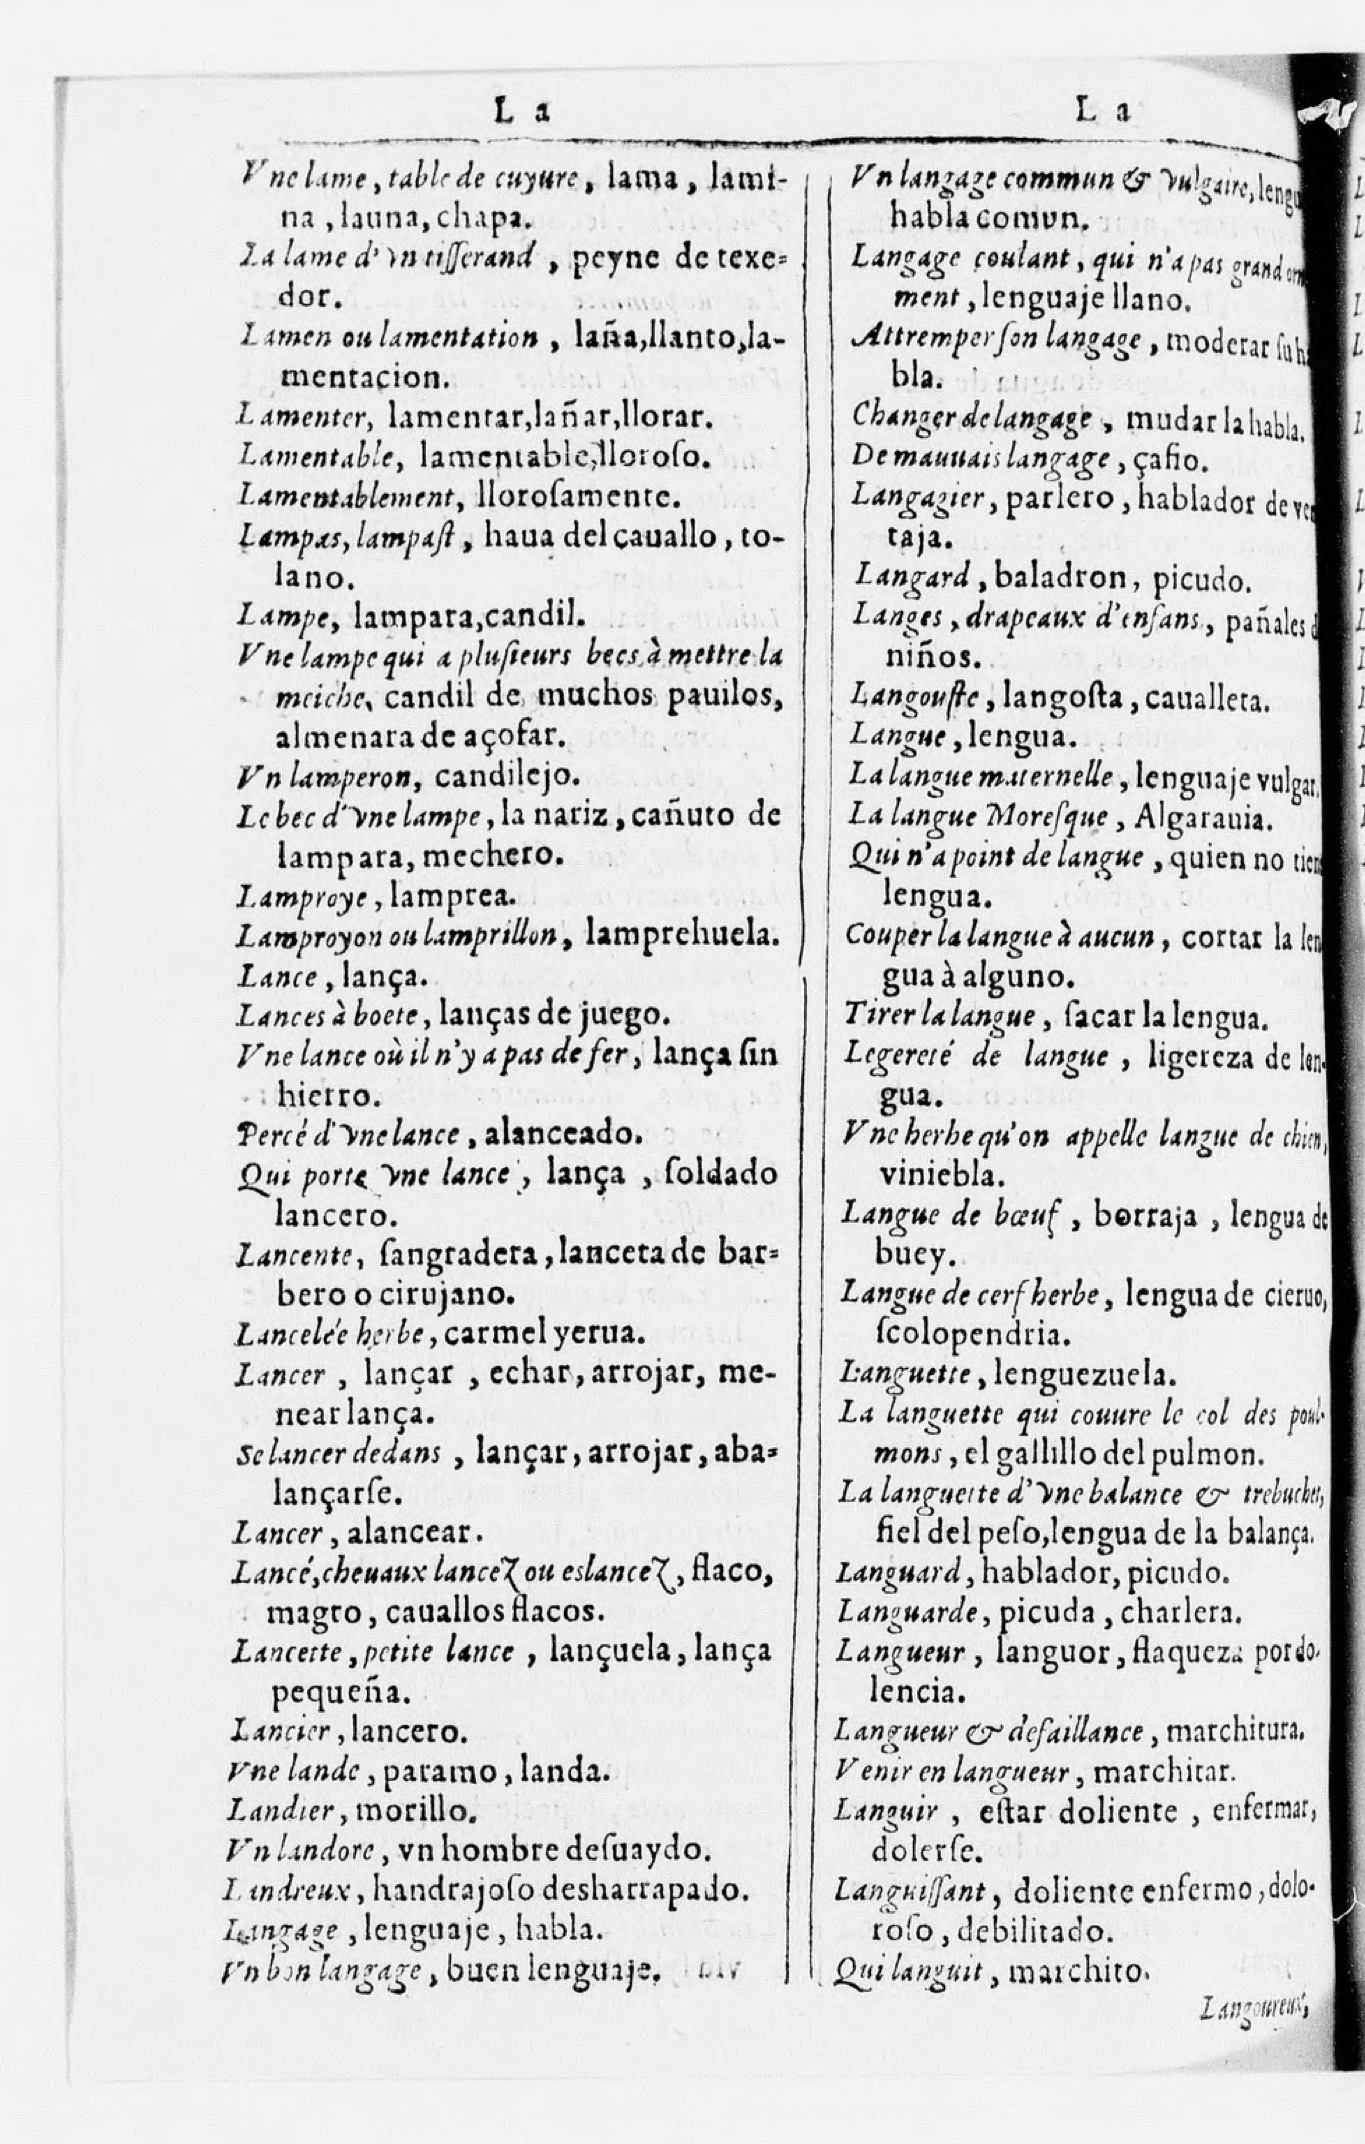 La
La
Vne lame, table de cuyure, lama, lami-
na, launa, chapa.
La lame d'vn tisserand, peyne de texe=
dor.
Lamen ou lamentation, laña, llanto, la-
mentaçion.
Lamenter, lamentar, lañar, llorar.
Lamentable, lamentable, lloroſo.
Lamentablement, lloroſamente.
Lampas, lampaſt, haua del cauallo, to-
lano.
Lampe, lampara, candil.
Vne lampe qui a pluſieurs becs à mettre la
meiche, candil de muchos pauilos,
almenara de açofar.
Vn lamperon, candilejo.
Le bec d'vne lampe, la nariz, cañuto de
lampara, mechero.
Lamproye, lamprea.
Lamproyon ou lamprillon, lamprehuela.
Lance, lança.
Lances à boete, lanças de juego.
Vne lance où il n'y a pas de fer, lança ſin
hierro.
Percé d'vne lance, alanceado.
Qui porte vne lance, lança, ſoldado
lancero.
Lancente, ſangradera, lanceta de bar=
bero o cirujano.
Lancelée herbe, carmel yerua.
Lancer, lançar, echar, arrojar, me-
near lança.
Se lancer dedans, lançar, arrojar, aba=
lançarſe.
Lancer, alancear.
Lancé, cheuaux lancez ou eslancez, flaco,
magro, cauallos flacos.
Lancette, petite lance, lançuela, lança
pequeña.
Lancier, lancero.
Vne lande, paramo, landa.
Landier, morillo.
Vn landore, vn hombre deſuaydo.
Landreux, handrajoſo desharrapado.
Langage, lenguaje, habla.
Vn bon langage, buen lenguaje.
Vn langage commun & vulgaire,
habla comun.
Langage coulant, qui n'a pas grand
ment, lenguaje llano.
Attremper ſon langage, moderar ſu
bla.
Changer de langage, mudar la habla.
De mauuais langage, çafio.
Langagier, parlero, hablador de
taja.
Langard, baladron, picudo.
Langes, drapeaux d'enfans, pañales
niños.
Langouſte, langoſta, caualleta.
Langue, lengua.
La langue maternelle, lenguaje vulgar.
La langue Moreſque, Algarauia.
Qui n'a point de langue, quien no
lengua.
Couper la langue à aucun, cortar la len
gua à alguno.
Tirer la langue, ſacar la lengua.
Legereté de langue, ligereza de len-
gua.
Vne herbe qu'on appelle langue de chien,
viniebla.
Langue de bœuf, borraja, lengua de
buey.
Langue de cerf herbe, lengua de cieruo,
ſcolopendria.
Languette, lenguezuela.
La languette qui couure le col des poul-
mons, el gallillo del pulmon.
La languette d'vne balance & trebuchet,
fiel del peſo, lengua de la balança.
Languard, hablador, picudo.
Languarde, picuda, charlera.
Langueur, languor, flaqueza por do-
lencia.
Langueur & defaillance, marchitura.
Venir en langueur, marchitar.
Languir, eſtar doliente, enfermar,
dolerſe.
Languiſſant, doliente enfermo, dolo-
roſo, debilitado.
Qui languit, marchito.
Langoureux,